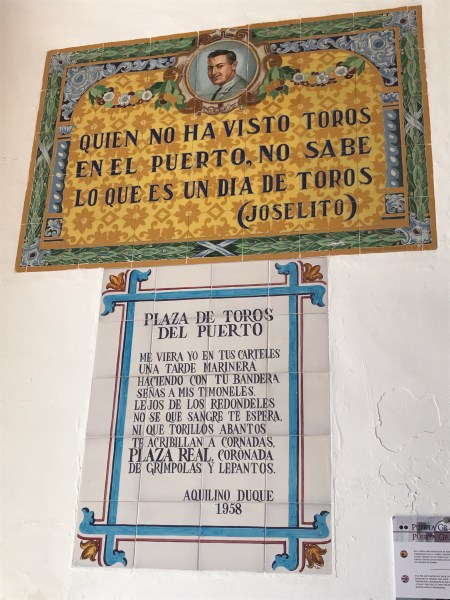 QUIEN NO HA VISTO TOROS
EN EL PUERTO, NO SABE
LO QUE ES UN DIA DE TOROS
(JOSELITO)
PLAZA DE TOROS
DEL PUERTO
ME VIERA YO EN TUS CARTELES
UNA TARDE MARINERA
HACIENDO CON TU BANDERA
SEÑAS A MIS TIMONELES.
LEJOS DE LOS REDONDELES
NO SE QUE SANGRE TE ESPERA.
NI QUE TORILLOS ABANTOS
TE ACRIBILLAN A CORNADAS,
PLAZA REAL, CORONADA
DE GRIMPOLAS Y LEPANTOS.
AQUILINO DUQUE
1958